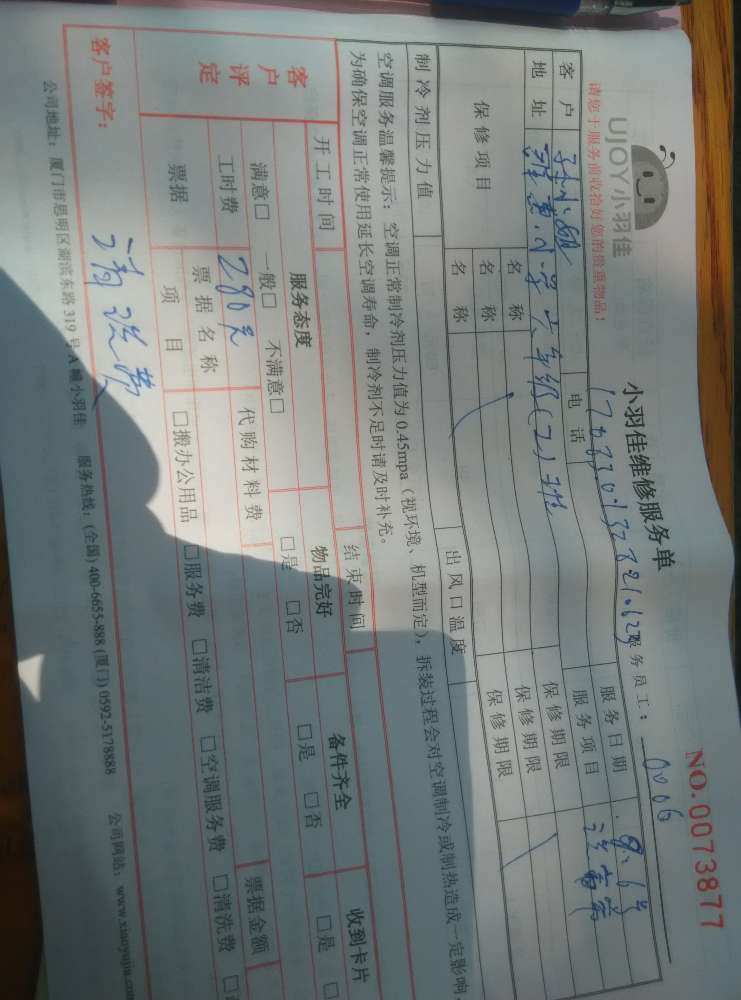 UJOY小羽佳
小羽佳维修服务单
NO.0073877
请您于服务前收拾好您的贵重物品!
服务员工: 0006
客户 电话 服务日期 9.6号
地址 小学六年级(2)班 服务项目
保修项目 名称 保修期限
名称 保修期限
名称 保修期限
制冷剂压力值 出风口温度
空调服务温馨提示: 空调正常制冷剂压力值为0.45mpa (视环境、机型而定), 拆装过程会对空调制冷或制热造成一定影响,
为确保空调正常使用延长空调寿命, 制冷剂不足时请及时补充。
开工时间 结束时间
客户评定 服务态度 物品完好 备件齐全 收到卡片
满意□ 一般□ 不满意□ □是 □否 □是 □否 □是 □
工时费 280元 代购材料费
票据 票据名称 票据金额
项目 □搬办公用品 □服务费 □清洁费 □空调服务费 □清洗费
客户签字: 清洗费
公司地址: 厦门市思明区湖滨东路319号A幢小羽佳 服务热线: (全国) 400-6655-888 (厦门) 0592-5178888 公司网站: www.xiaoyujia.com